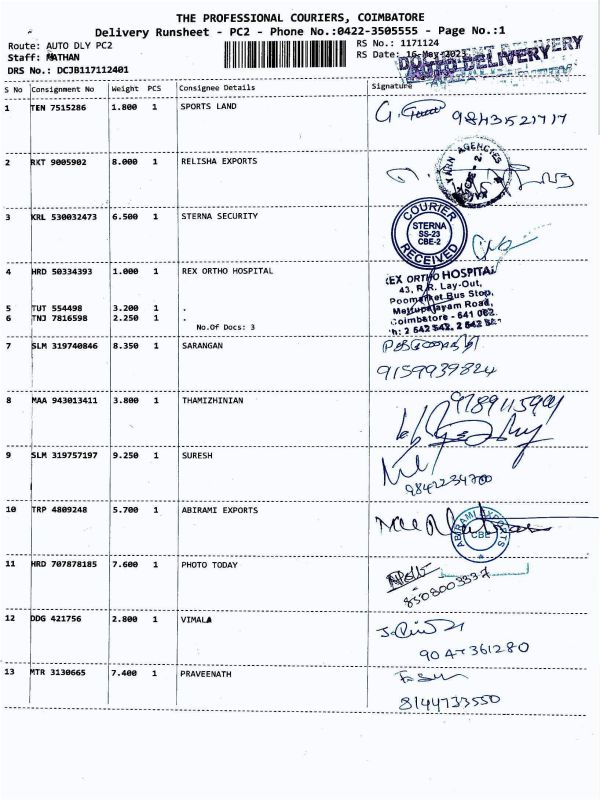 THE PROFESSIONAL COURIERS, COIMBATORE
Delivery Runsheet - PC2 - Phone No.:0422-3505555 - Page No.:1
Route: AUTO DLY PC2
RS No.: 1171124
Staff: NATHAN
RS Date: 16-May-2023
DRS No.: DCJB117112401
AUTO DELIVERY
S No Consignment No Weight PCS Consignee Details Signature
1 TEN 7515286 1.800 1 SPORTS LAND
9843152717
2 RKT 9005902 8.000 1 RELISHA EXPORTS
YARN AGENCIES
3 KRL 530032473 6.500 1 STERNA SECURITY
COURIER
STERNA
SS-23
CBE-2
RECEIVED
4 HRD 50334393 1.000 1 REX ORTHO HOSPITAL
REX ORTHO HOSPITAL
43, R.R. Lay-Out,
Poomarket Bus Stop,
Mettupalayam Road,
Coimbatore - 641 002.
5 TUT 554498 3.200 1 .
6 TNJ 7816598 2.250 1 .
No.Of Docs: 3
7 SLM 319740846 8.350 1 SARANGAN
9159939824
8 MAA 943013411 3.800 1 THAMIZHINIAN
9 SLM 319757197 9.250 1 SURESH
9842234700
10 TRP 4809248 5.700 1 ABIRAMI EXPORTS
ABIRAMI EXPORTS
CBE
11 HRD 707878185 7.600 1 PHOTO TODAY
8508003337
12 DDG 421756 2.800 1 VIMALA
13 MTR 3130665 7.400 1 PRAVEENATH
8144733550